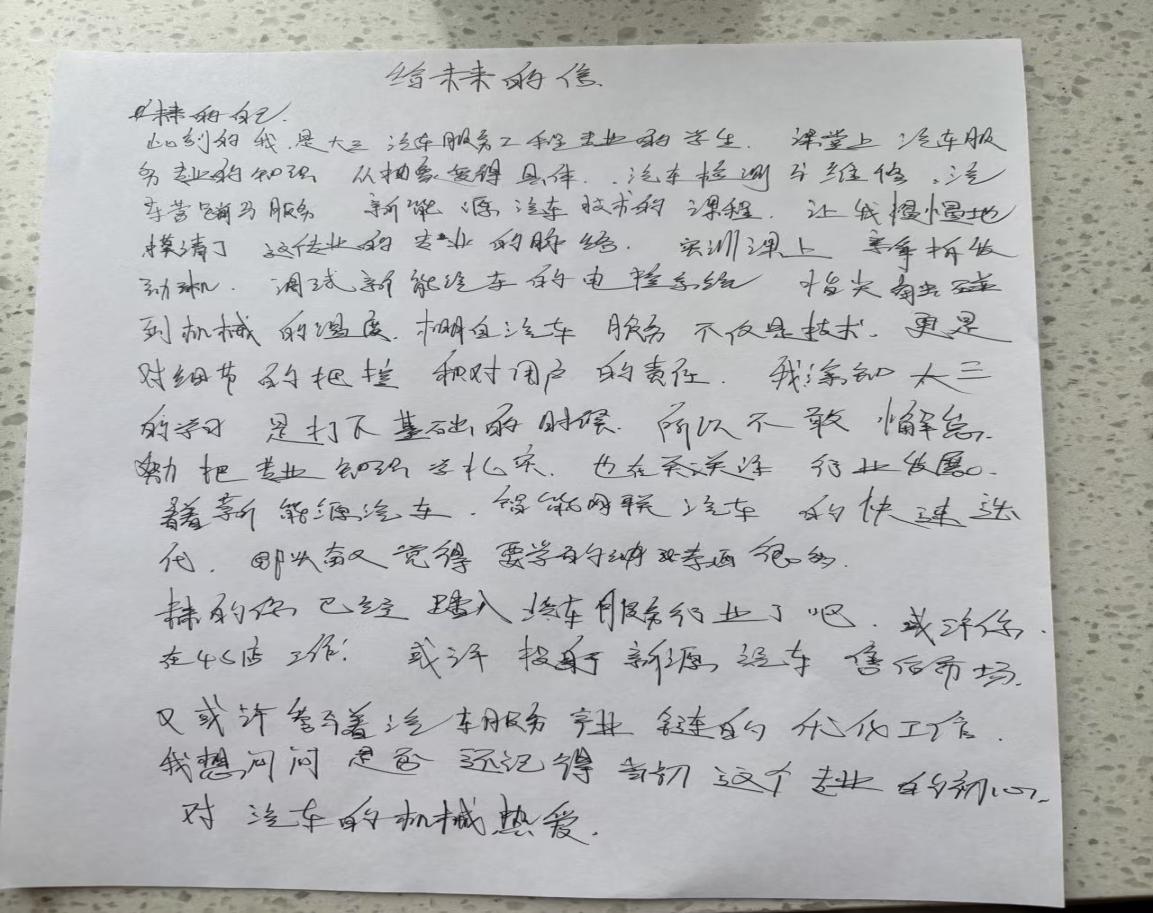 给未来的信
未来的自己
此刻的我是大三汽车服务工程专业的学生. 课堂上汽车服
务专业的知识 从抽象变得具体. 汽车检测与维修、汽
车营销与服务 新能源汽车技术的课程. 让我慢慢地
摸清了这专业的脉络. 实训课上 亲手拆发
动机. 调试新能汽车的电控系统 指尖触碰
到机械的温度. 明白汽车服务不仅是技术. 更是
对细节的把控 和对用户的责任. 我深知大三
的学习 是打下基础的时候. 所以不敢懈怠.
努力把专业知识学扎实. 也在关注 行业发展.
看着新能源汽车. 智能网联汽车的快速迭
代. 觉得要学的 很多.
未来的你已经踏入汽车服务行业了吧. 或许你.
在4S店工作. 或许投身于新源汽车售后市场.
又或许参与着汽车服务产业链的优化工作.
我想问问是否还记得当初这个专业的初心.
对汽车的机械热爱.